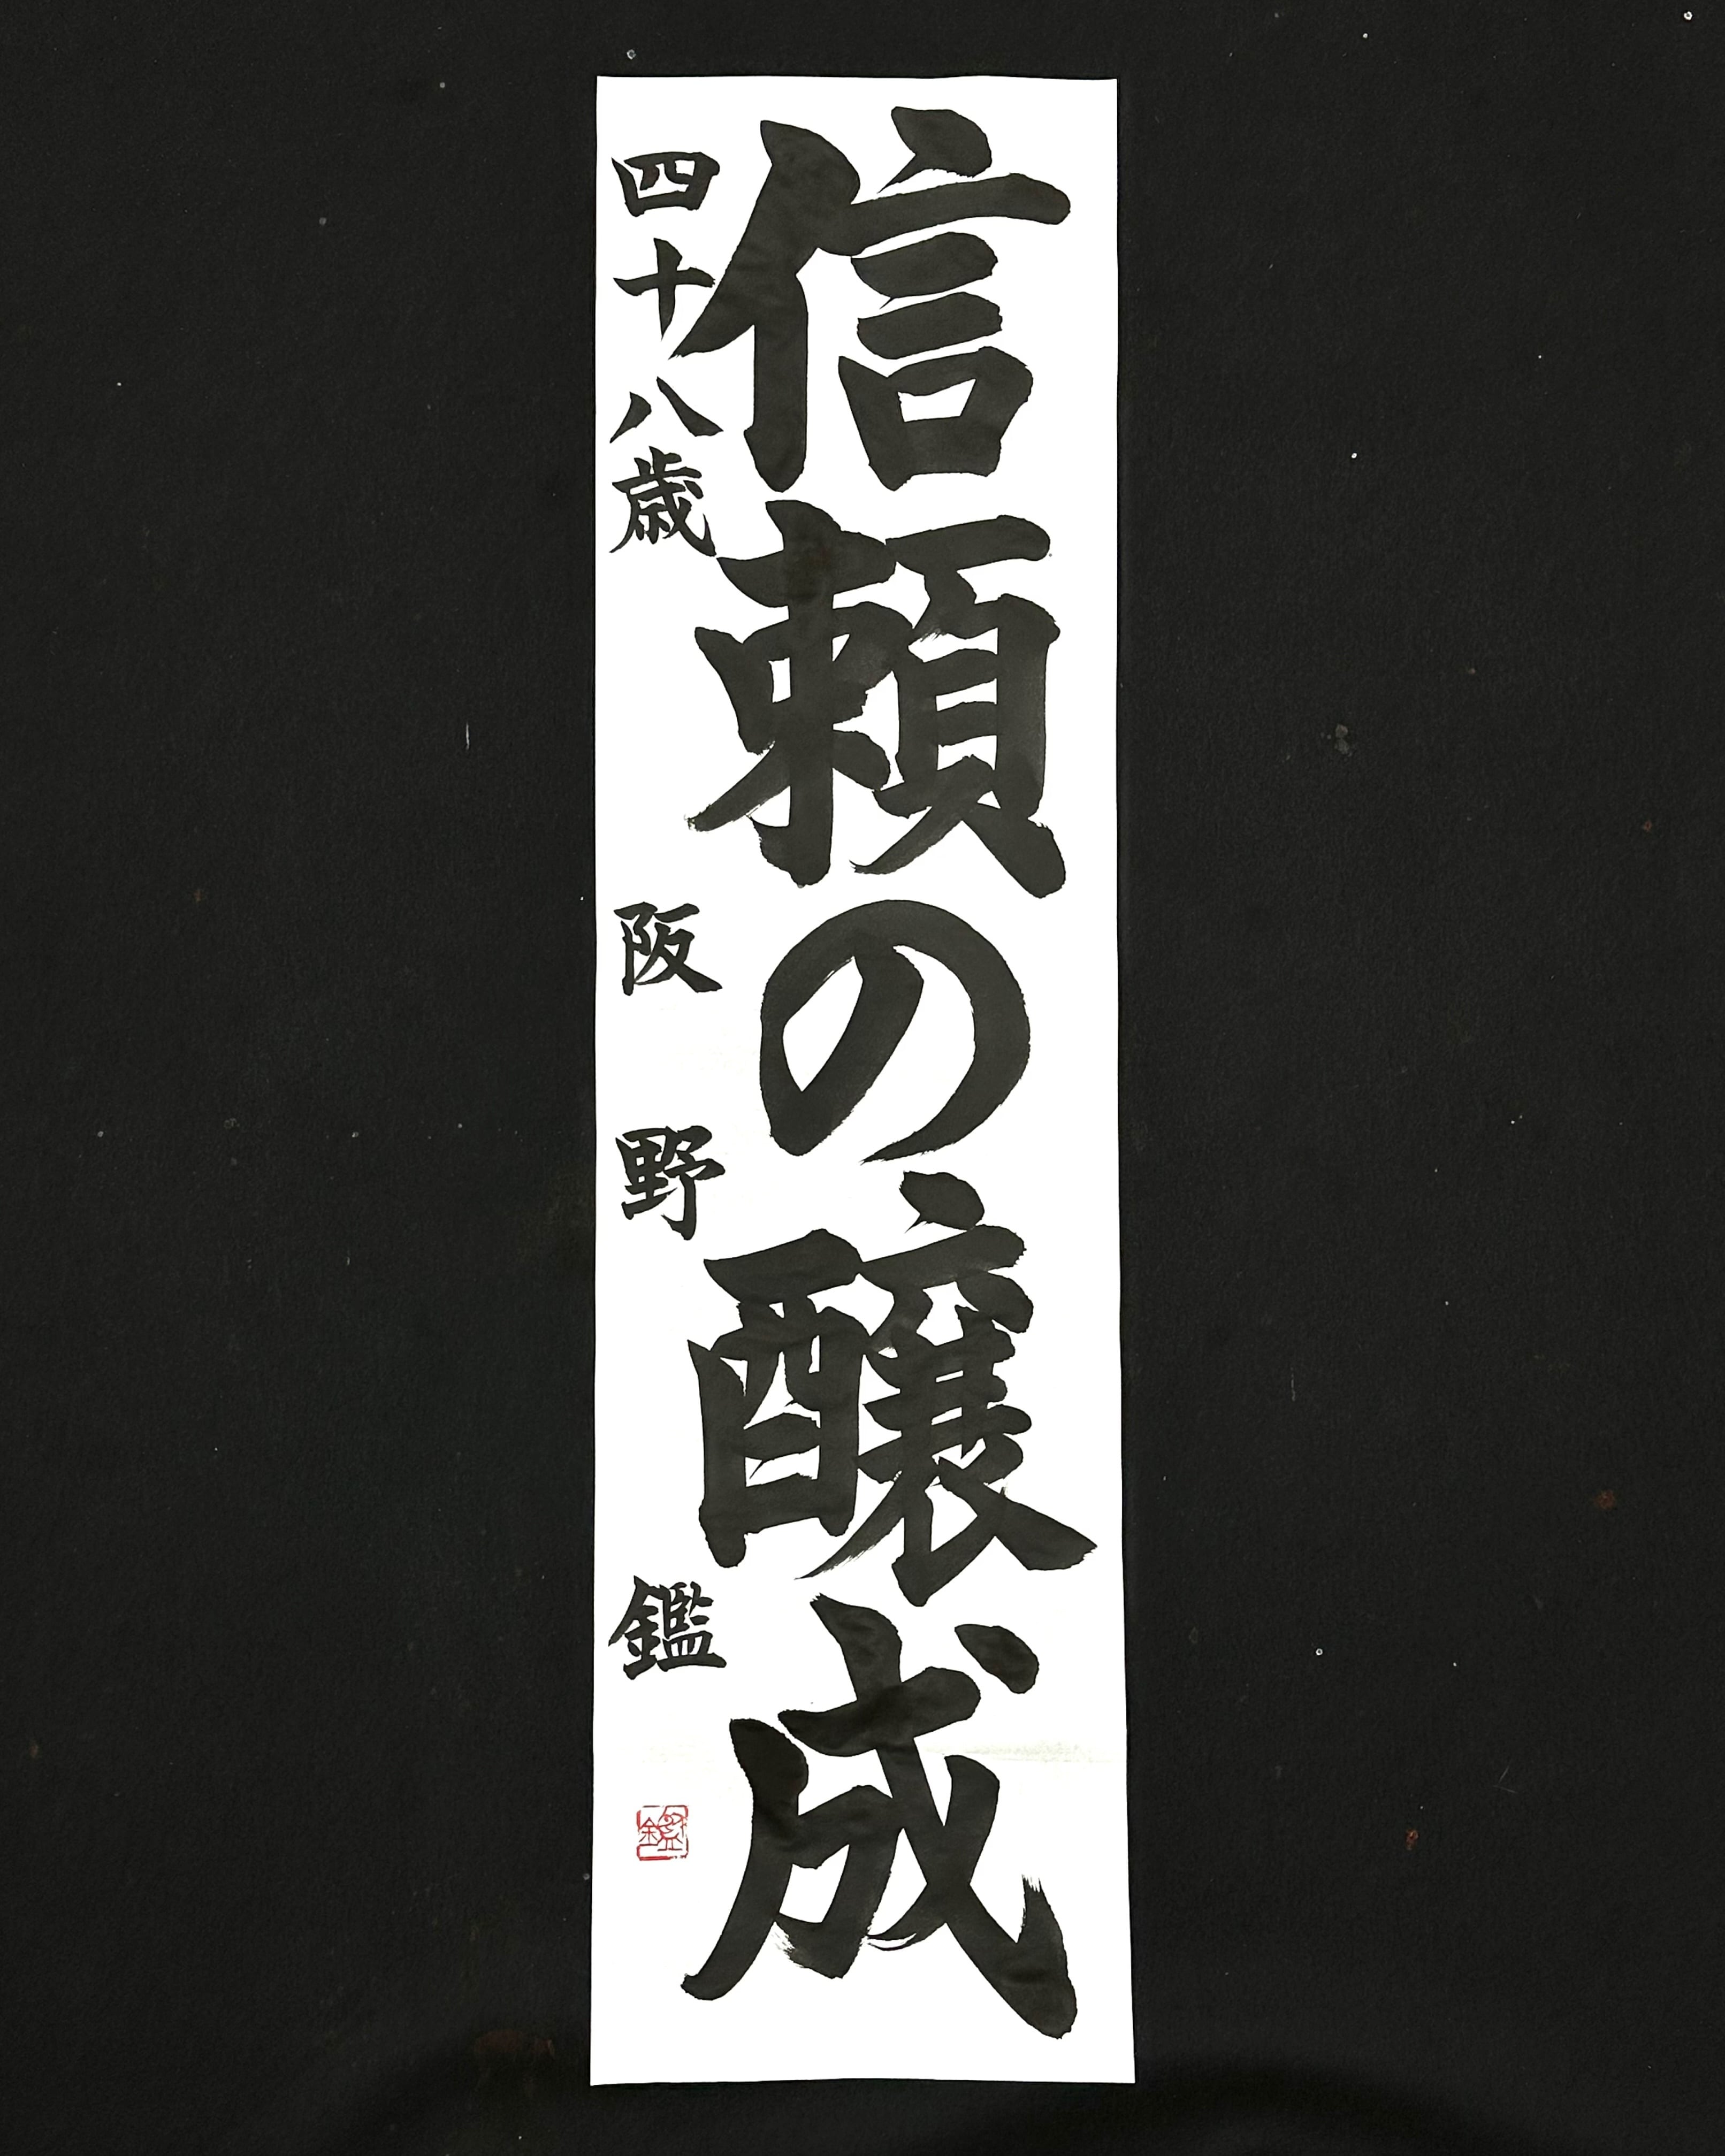 信頼の醸成
四十八歳 阪野 鑑
鑑